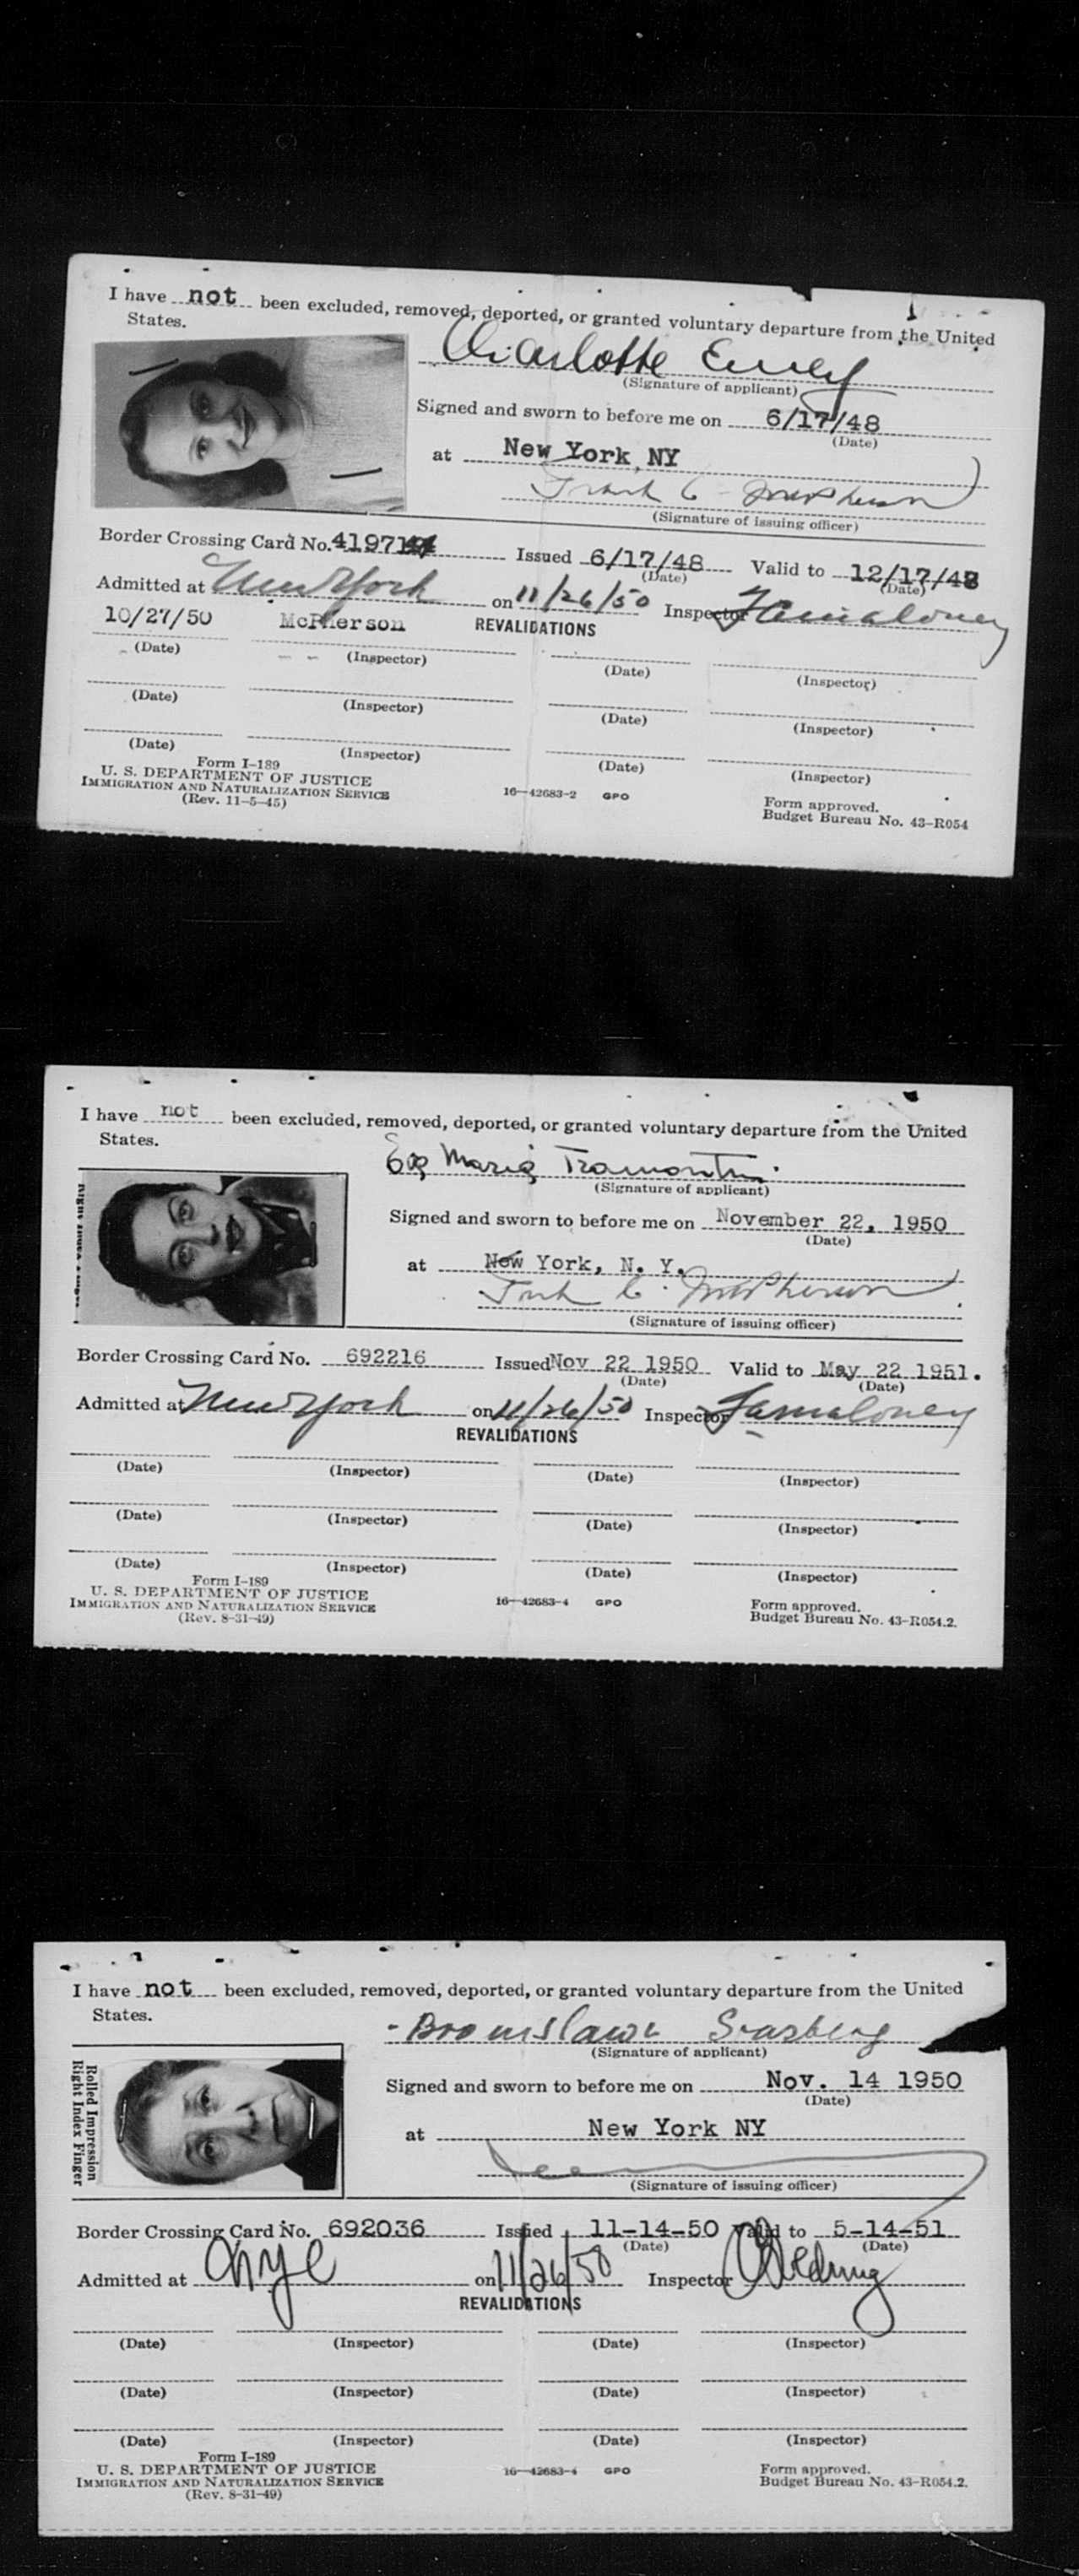 I have not been excluded, removed, deported, or granted voluntary departure from the United
States.
Charlotte
(Signature of applicant)
Signed and sworn to before me on 6/17/48
(Date)
at New York, NY
Frank C. McPherson
(Signature of issuing officer)
Border Crossing Card No. Issued 6/17/48 Valid to 12/17/48
(Date) (Date)
Admitted at New York on 11/26/50 Inspector
10/27/50 McPherson REVALIDATIONS
(Date) (Inspector) (Date) (Inspector)
(Date) (Inspector) (Date) (Inspector)
(Date) (Inspector) (Date) (Inspector)
Form I-189
U. S. DEPARTMENT OF JUSTICE
IMMIGRATION AND NATURALIZATION SERVICE
(Rev. 11-5-45)
16—42683-2 GPO
Form approved.
Budget Bureau No. 43-R054
I have not been excluded, removed, deported, or granted voluntary departure from the United
States.
Maria
(Signature of applicant)
Signed and sworn to before me on November 22, 1950
(Date)
at New York, N. Y.
Frank C. McPherson
(Signature of issuing officer)
Border Crossing Card No. 692216 Issued Nov 22 1950 Valid to May 22 1951.
(Date) (Date)
Admitted at New York on 11/26/50 Inspector
REVALIDATIONS
(Date) (Inspector) (Date) (Inspector)
(Date) (Inspector) (Date) (Inspector)
(Date) (Inspector) (Date) (Inspector)
Form I-189
U. S. DEPARTMENT OF JUSTICE
IMMIGRATION AND NATURALIZATION SERVICE
(Rev. 8-31-49)
16—42683-4 GPO
Form approved.
Budget Bureau No. 43-R054.2.
I have not been excluded, removed, deported, or granted voluntary departure from the United
States.
(Signature of applicant)
Rolled Impression
Right Index Finger
Signed and sworn to before me on Nov. 14 1950
(Date)
at New York NY
(Signature of issuing officer)
Border Crossing Card No. 692036 Issued 11-14-50 Valid to 5-14-51
(Date) (Date)
Admitted at nyc on 11/26/50 Inspector
REVALIDATIONS
(Date) (Inspector) (Date) (Inspector)
(Date) (Inspector) (Date) (Inspector)
(Date) (Inspector) (Date) (Inspector)
Form I-189
U. S. DEPARTMENT OF JUSTICE
IMMIGRATION AND NATURALIZATION SERVICE
(Rev. 8-31-49)
16—42683-4 GPO
Form approved.
Budget Bureau No. 43-R054.2.